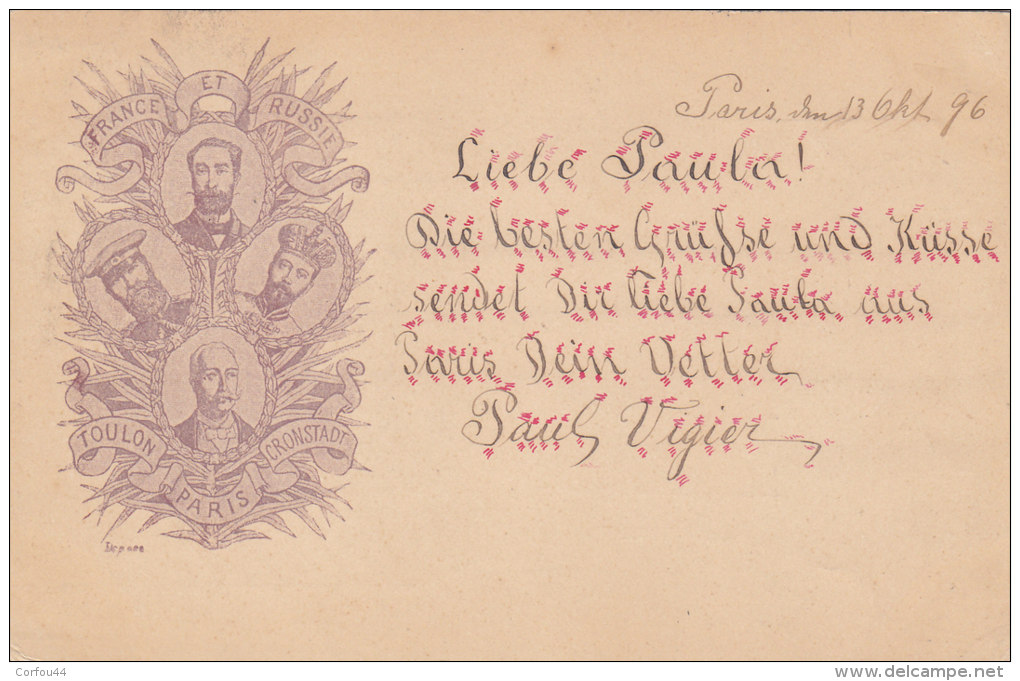 FRANCE ET RUSSIE
TOULON PARIS CRONSTADT
Paris, den 13 Okt 96
Liebe Paula!
Die besten Grüße und Küsse
sendet Dir liebe Paula aus
Paris Dein Vetter
Paul Vigier
Corfou44
www.delcampe.net